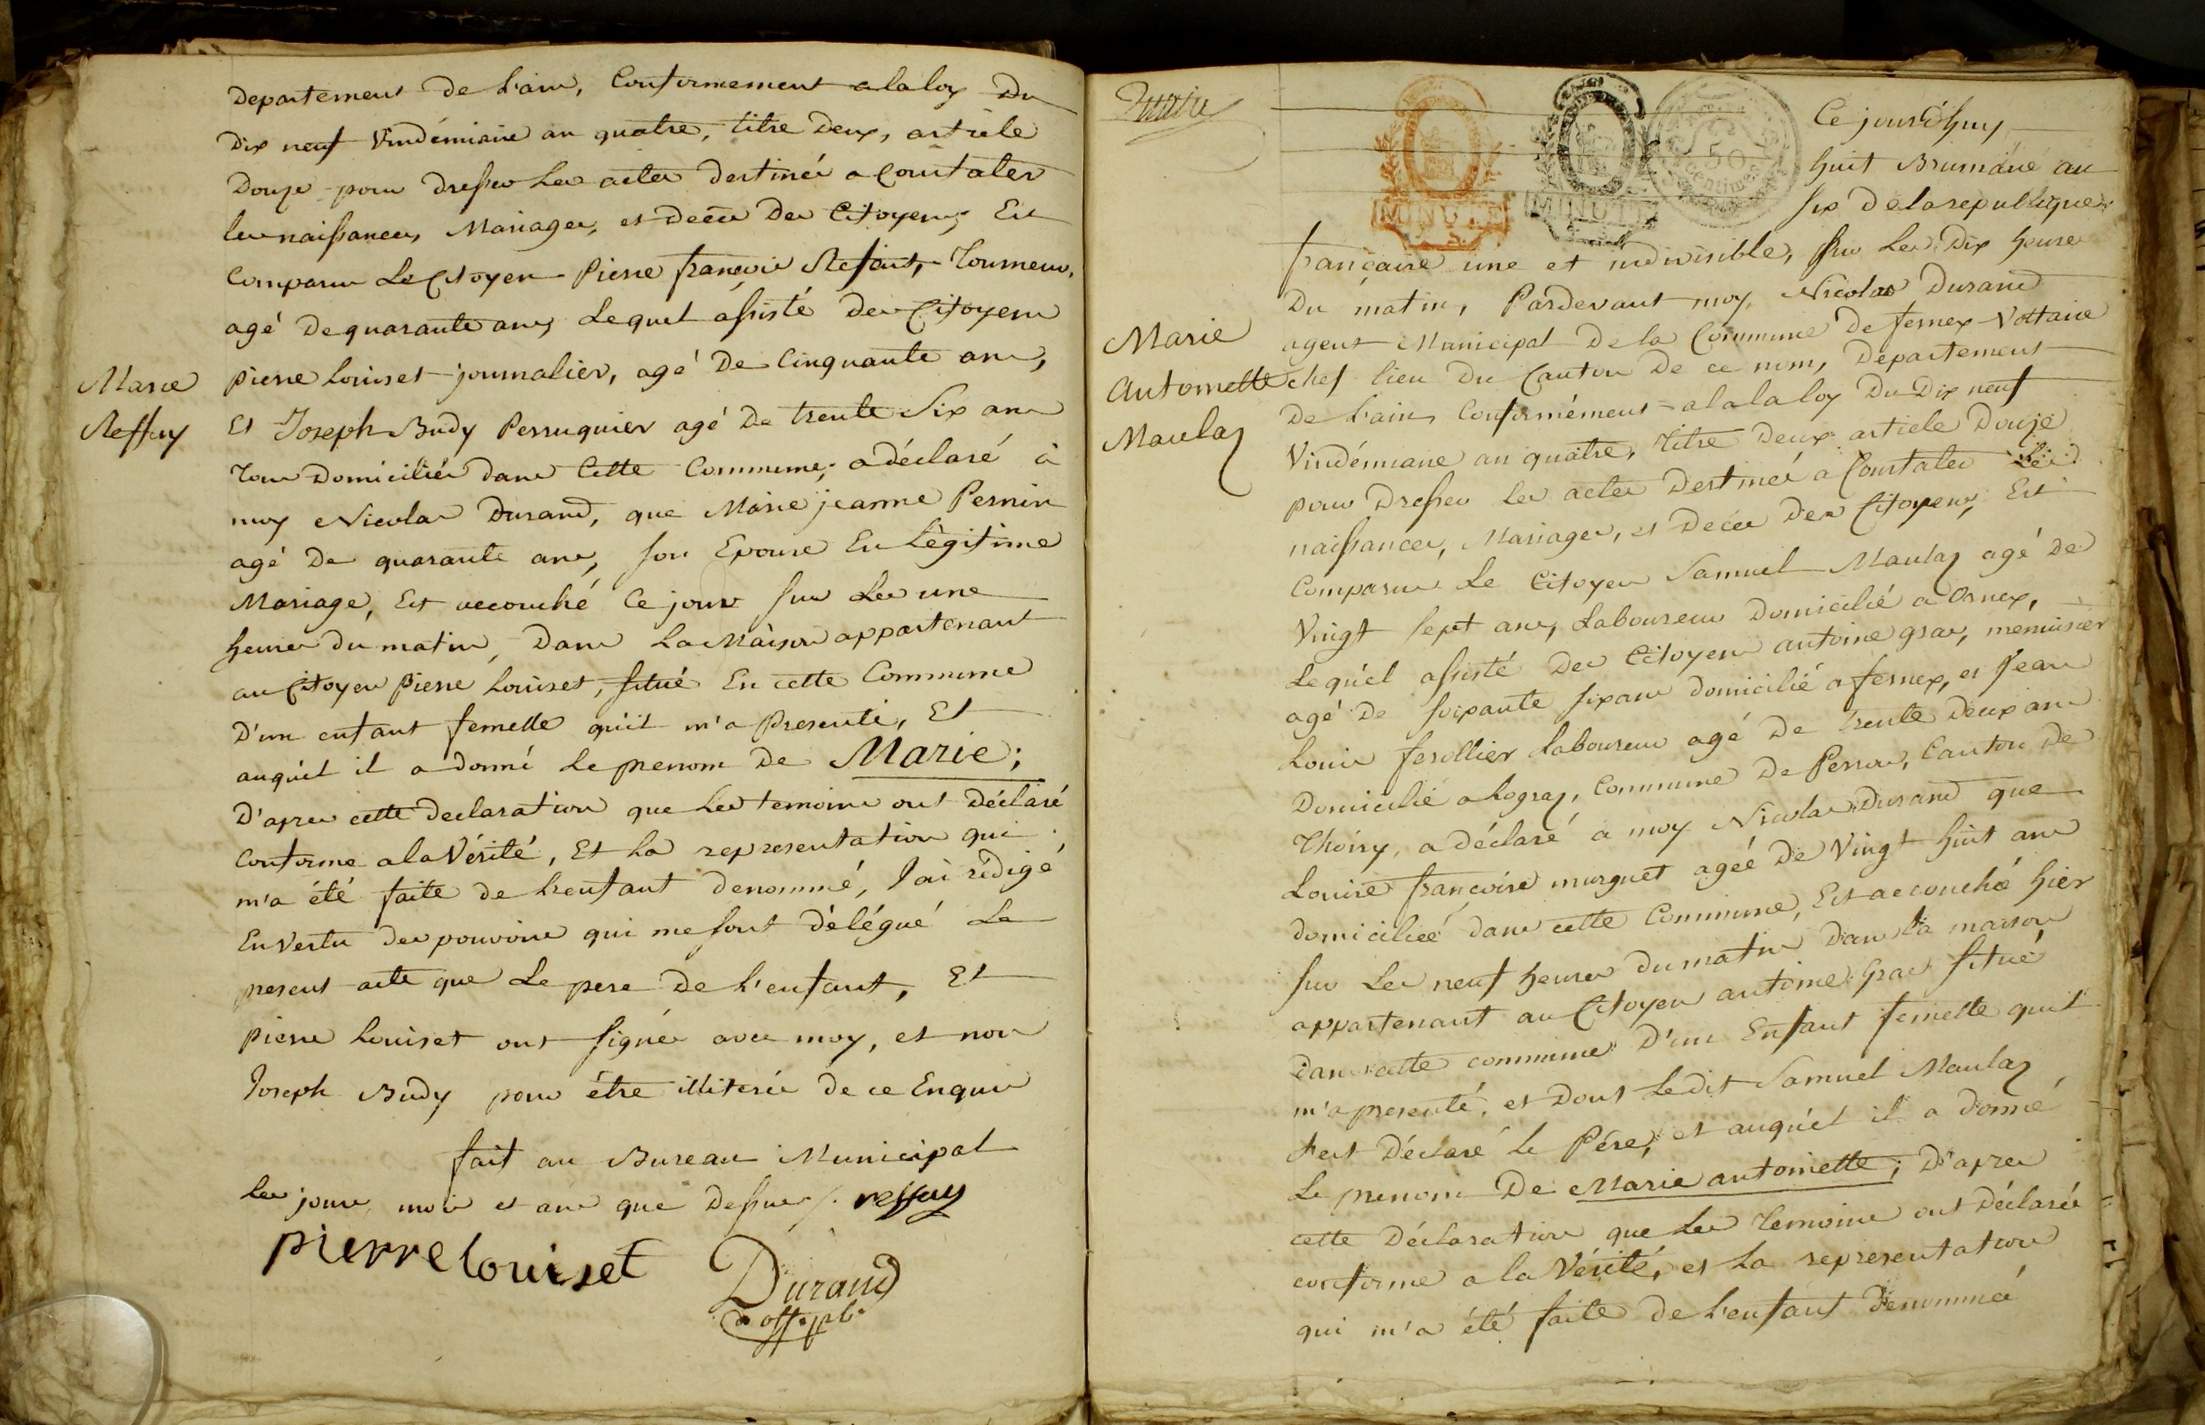 Departement De l'ain, Conformement a la loy Du
Dix neuf Vindémiaire an quatre, titre Deux, article
Douze pour dresser les actes destinés a Constater
les naissances, Mariages, et décès Des Citoyens, Est
Comparu Le Citoyen Pierre françois Tourneur,
agé De quarante ans, Lequel assisté Des Citoyens
pierre Louiset journalier, agé De Cinquante ans,
Marie
Reffay
Et Joseph Budy Perruquier agé De trente Six ans
Tous Domiciliés dans Cette Commune, a déclaré à
moy Nicolas Durand, que Marie jeanne Pernin
agé De quarante ans, son Epouse En Légitime
Mariage, Est accouché Ce jour sur Les une
heures du matin, Dans La Maison appartenant
au Citoyen pierre Louiset, situé En cette Commune
D'un enfant femelle qu'il m'a Presenté, Et
auquel il a donné Le prenom De Marie;
D'apres cette declaration que Les temoins ont Déclaré
Conforme a la Vérité, Et La representation qui
m'a été faite de L'enfant denommé, J'ai rédigé
En Vertu des pouvoirs qui me sont délégué Le
present acte que Le pere De L'enfant, Et
pierre Louiset ont signés avec moy, et non
Joseph Budy pour être illiteré de ce Enquis
fait au Bureau Municipal
les jours, mois et ans que Dessus /. reffay
pierre louiset
Durand
off. pb.
Ce jourd'huy
huit Brumaire an
six De la republique
MINUTE
MINUTE
50
centimes
française une et indivisible, sur Les Dix heures
Du matin, Pardevant moy, Nicolas Durand
agent Municipal De la Commune De fernex-Voltaire
Marie
Antoinette
Maulaz
chef lieu Du Canton De ce nom, Département
De L'ain, Conformément a la la loy Du Dix neuf
Vindémiaire an quatre, Titre Deux article Douze
pour Dresser les actes Destinés a Constater Les
naissances, Mariages, et Décès Des Citoyens, Est
Comparu Le Citoyen Samuel Maulaz agé De
Vingt sept ans, Laboureur Domicilié a Ornex,
Lequel assisté Des Citoyens antoine gras, menuisier
agé De soixante six ans domicilié a fernex, et Jean
Louis Laboureur agé De trente Deux ans
Domicilié a Logras, Commune De Peron, Canton De
Thoiry, a déclaré a moy Nicolas Durand que
Louise françoise murguet agée De Vingt huit ans
domiciliée dans cette Commune, Est accouché hier
sur Les neuf heures du matin dans la maison
appartenant au Citoyen antoine gras situé
dans cette commune D'un Enfant femelle qu'il
m'a presenté, et Dont Ledit Samuel Maulaz
s'est Déclaré le Pére, et auquel il a donné
Le prenom De Marie antoinette; D'apres
cette Déclaration que Les Temoins ont Déclarés
conforme a la Vérité, et La representation
qui m'a été faite de L'enfant Denommé